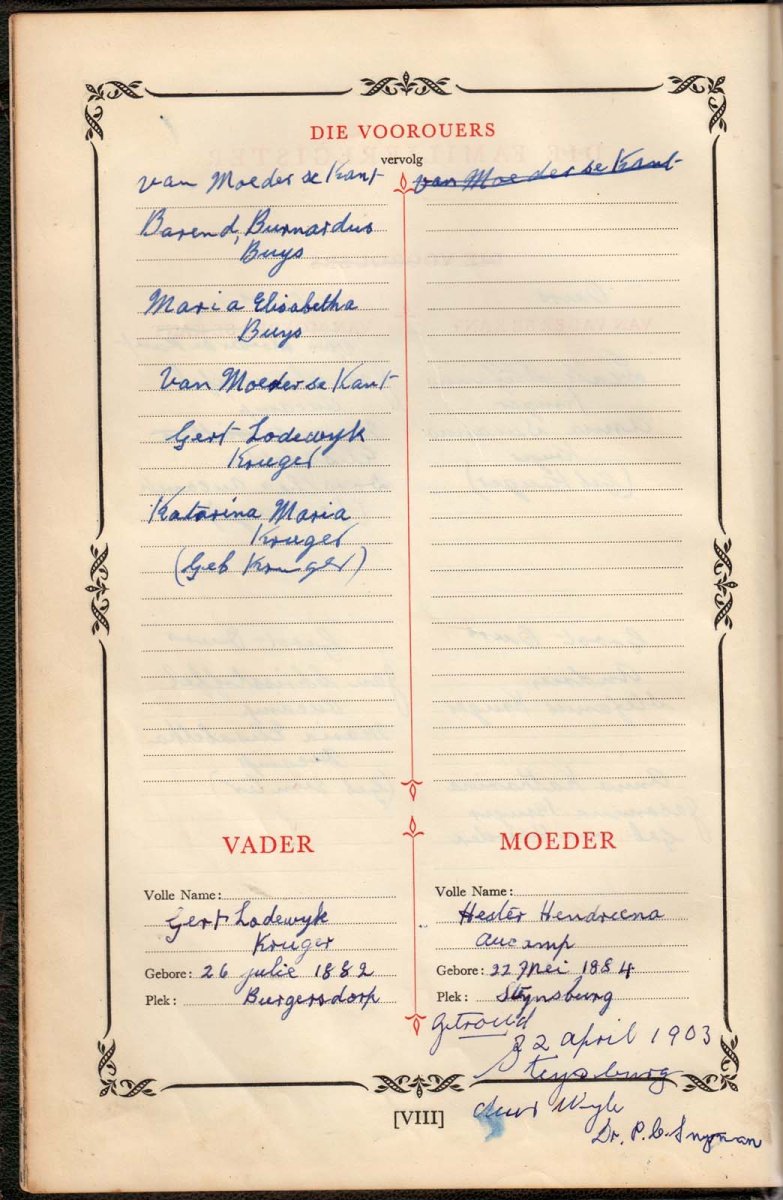 DIE VOOROUERS
vervolg
van Moeder se Kant
van Moeder se Kant
Barend, Burnardus
Buys
Maria Elisabetha
Buys
Van Moeder se Kant
Gert Lodewyk
Kruger
Katarina Maria
Kruger
(Geb Kruger)
VADER
Volle Name:
Gert Lodewyk
Kruger
Gebore: 26 julie 1882
Plek: Burgersdorp
MOEDER
Volle Name:
Hester Hendreena
Aucamp
Gebore: 22 Mei 1884
Plek: Steynsburg
getroud
22 april 1903
Steynsburg
deur Wyle
Dr. P. C. Snyman
[VIII]